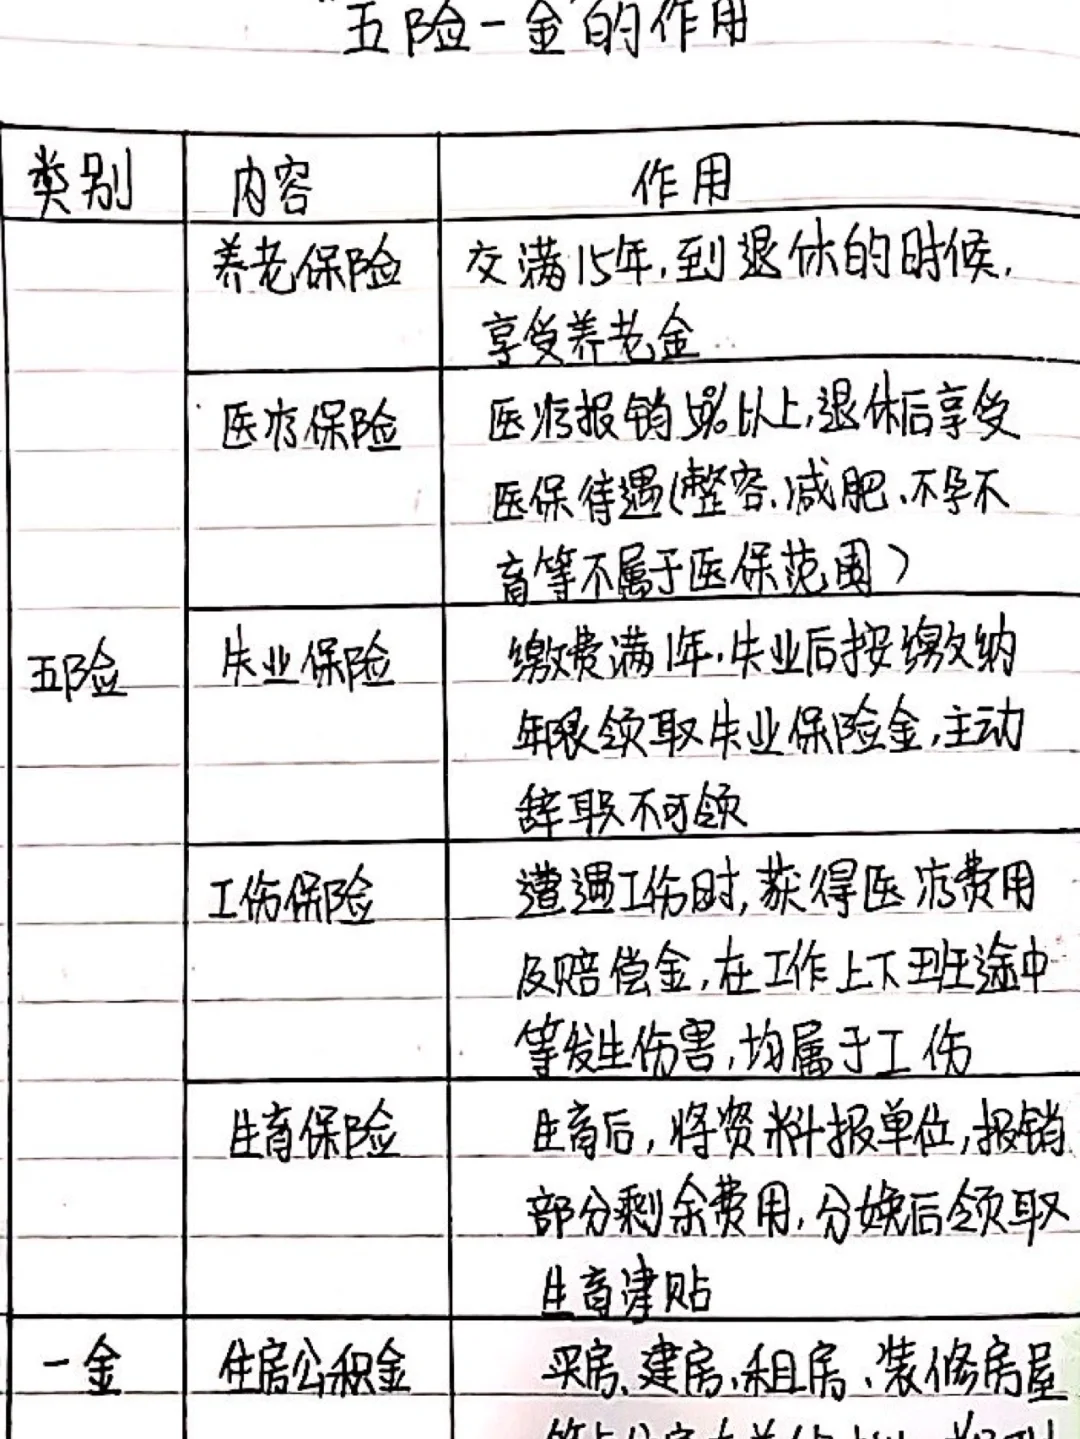 "五险一金"的作用
类别 内容 作用
养老保险 交满15年,到退休的时候,
享受养老金
医疗保险 医疗报销5%以上,退休后享受
医保待遇(整容、减肥、不孕不
育等不属于医保范围)
五险 失业保险 缴费满1年,失业后按缴纳
年限领取失业保险金,主动
辞职不可领
工伤保险 遭遇工伤时,获得医疗费用
及赔偿金,在工作上下班途中
等发生伤害,均属于工伤
生育保险 生育后,将资料报单位,报销
部分剩余费用,分娩后领取
生育津贴
一金 住房公积金 买房、建房、租房、装修房屋